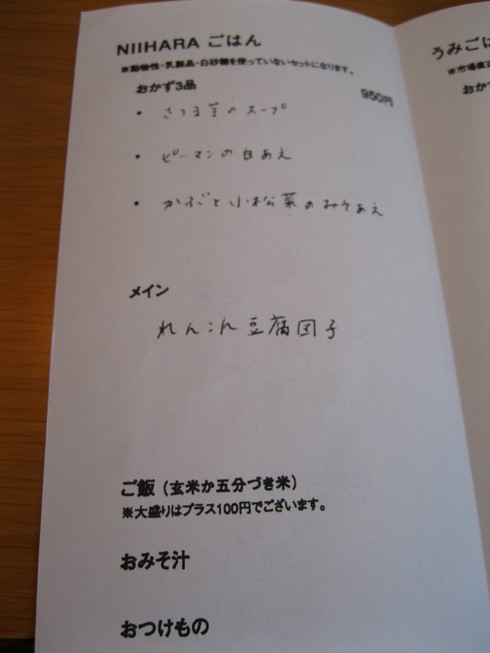 NIIHARA ごはん
※動物性・乳製品・白砂糖を使っていないセットになります。
おかず3品
950円
・ さつま芋のスープ
・ ピーマンの白あえ
・ かぶと小松菜のみそあえ
メイン
れんこん豆腐団子
ご飯(玄米か五分づき米)
※大盛りはプラス100円でございます。
おみそ汁
おつけもの
うみごは
※市場直
おか